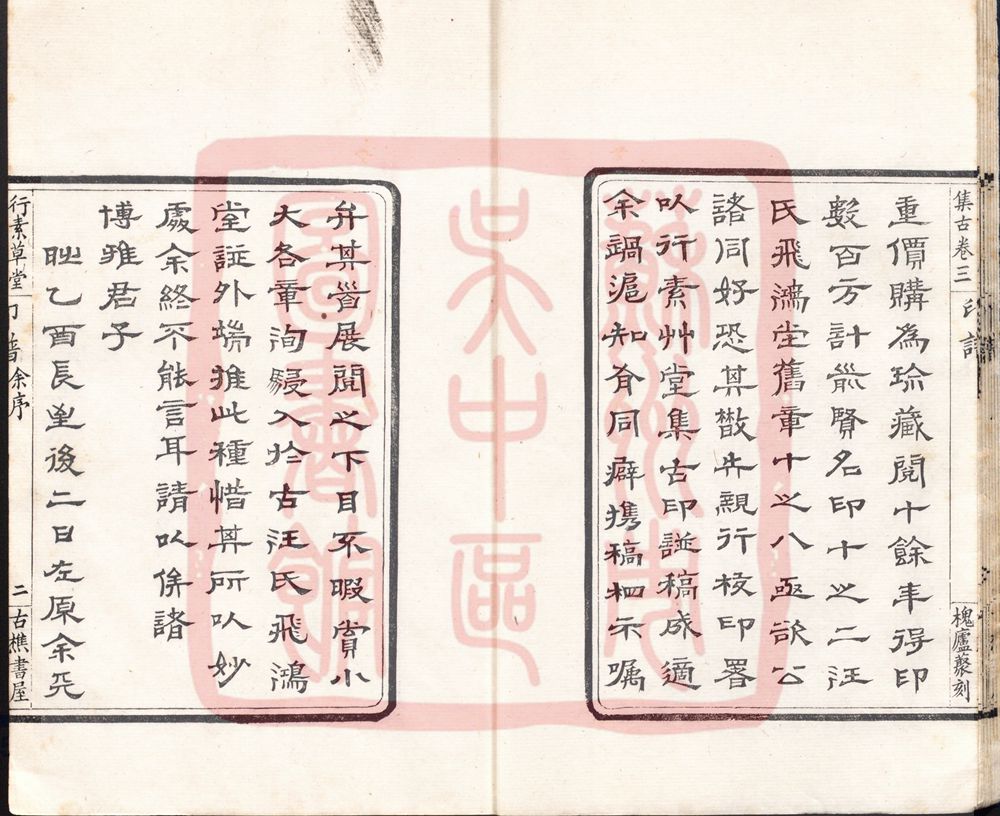 集古卷三
印譜
槐廬叢刻
重價購為珍藏閱十餘年得印
數百方計前賢名印十之二汪
氏飛鴻堂舊章十之八亟欲公
諸同好恐其散失親行校印署
以行素艸堂集古印譜稿成適
余歸滬知有同癖携稿相示嘱
弁其首展閱之下目不暇賞小
大各章洵駸入於古汪氏飛鴻
堂譜外端推此種惜其所以妙
處余終不能言耳請以俟諸
博雅君子
乙酉長至後二日左原余
行素草堂
余序
二
古樵書屋
蘇州市
吳中區
圖書館